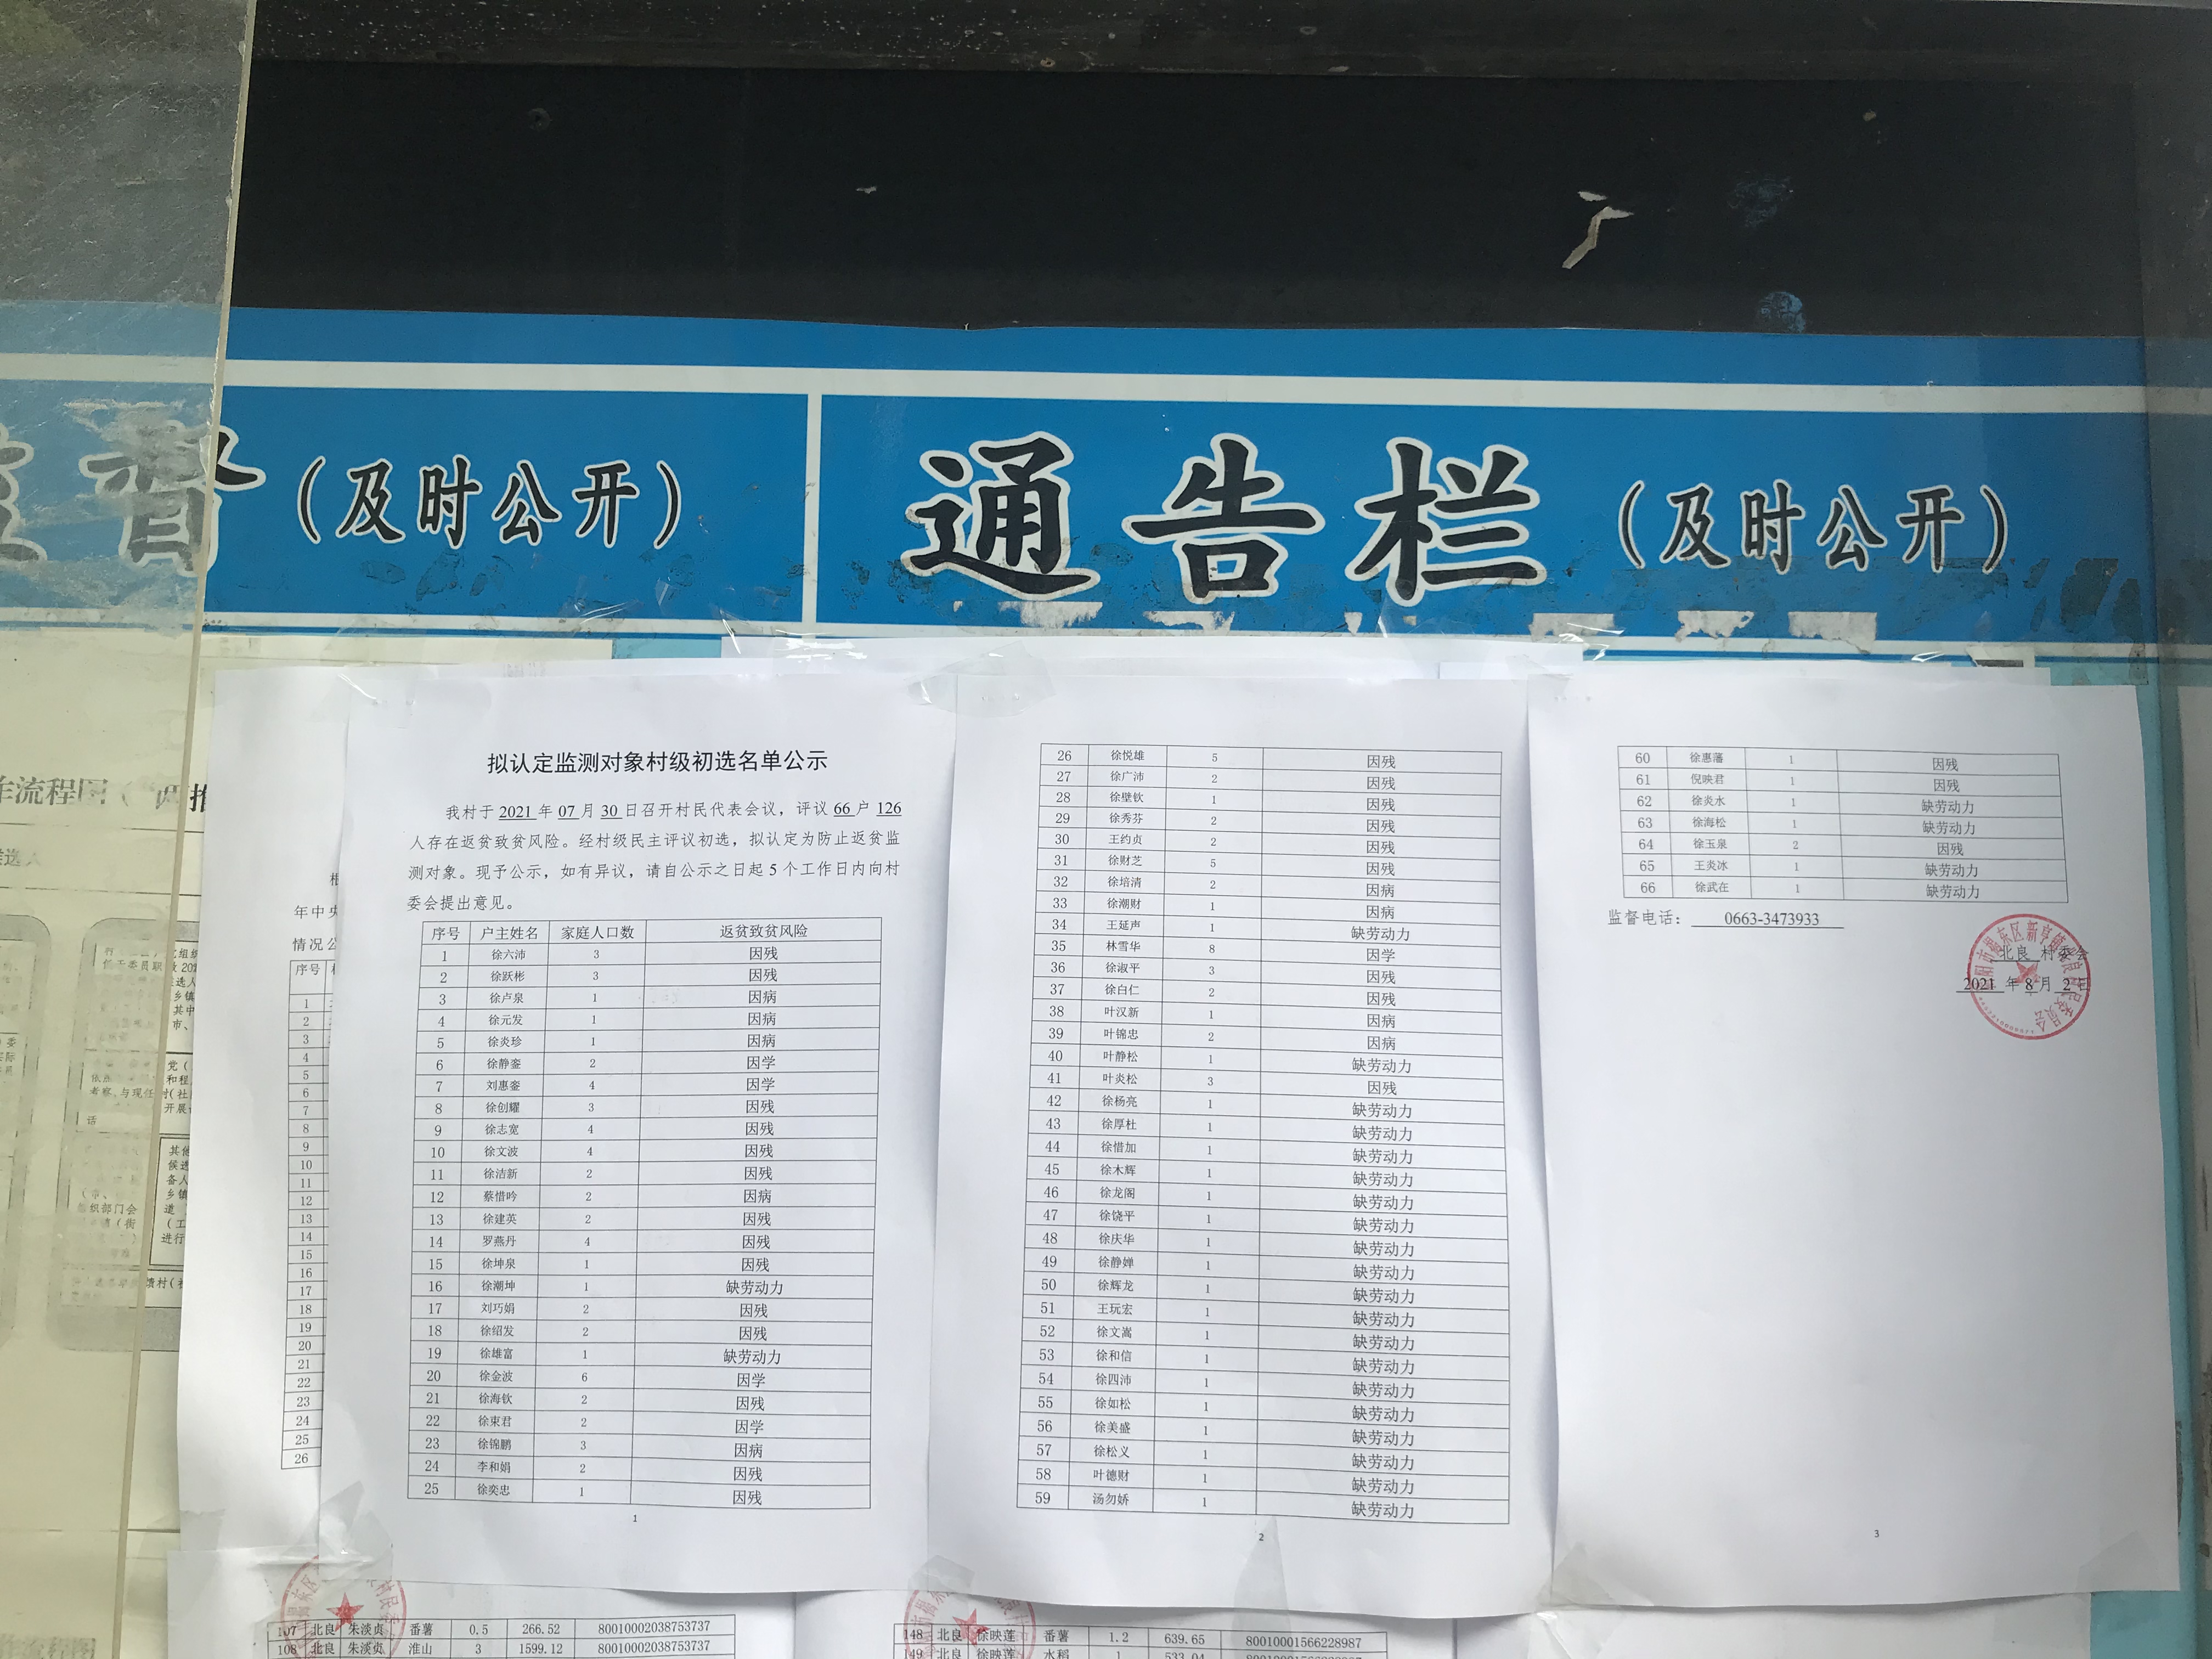 督（及时公开）
通告栏（及时公开）
拟认定监测对象村级初选名单公示
我村于 2021 年 07 月 30 日召开村民代表会议，评议 66 户 126
人存在返贫致贫风险。经村级民主评议初选，拟认定为防止返贫监
测对象。现予公示，如有异议，请自公示之日起 5 个工作日内向村
委会提出意见。
序号 户主姓名 家庭人口数 返贫致贫风险
1 徐六沛 3 因残
2 徐跃彬 3 因残
3 徐卢泉 1 因病
4 徐元发 1 因病
5 徐炎珍 1 因病
6 徐静銮 2 因学
7 刘惠銮 4 因学
8 徐创耀 3 因残
9 徐志宽 4 因残
10 徐文波 4 因残
11 徐洁新 2 因残
12 蔡惜吟 2 因病
13 徐建英 2 因残
14 罗燕丹 4 因残
15 徐坤泉 1 因残
16 徐潮坤 1 缺劳动力
17 刘巧娟 2 因残
18 徐绍发 2 因残
19 徐雄富 1 缺劳动力
20 徐金波 6 因学
21 徐海钦 2 因残
22 徐束君 2 因学
23 徐锦鹏 3 因病
24 李和娟 2 因残
25 徐奕忠 1 因残
1
26 徐悦雄 5 因残
27 徐广沛 2 因残
28 徐壁钦 1 因残
29 徐秀芬 2 因残
30 王约贞 2 因残
31 徐财芝 5 因残
32 徐培清 2 因病
33 徐潮财 1 因病
34 王延声 1 缺劳动力
35 林雪华 8 因学
36 徐淑平 3 因残
37 徐白仁 2 因残
38 叶汉新 1 因病
39 叶锦忠 2 因病
40 叶静松 1 缺劳动力
41 叶炎松 3 因残
42 徐杨亮 1 缺劳动力
43 徐厚杜 1 缺劳动力
44 徐惜加 1 缺劳动力
45 徐木辉 1 缺劳动力
46 徐龙阁 1 缺劳动力
47 徐饶平 1 缺劳动力
48 徐庆华 1 缺劳动力
49 徐静婵 1 缺劳动力
50 徐辉龙 1 缺劳动力
51 王玩宏 1 缺劳动力
52 徐文嵩 1 缺劳动力
53 徐和信 1 缺劳动力
54 徐四沛 1 缺劳动力
55 徐如松 1 缺劳动力
56 徐美盛 1 缺劳动力
57 徐松义 1 缺劳动力
58 叶德财 1 缺劳动力
59 汤勿娇 1 缺劳动力
2
60 徐惠藩 1 因残
61 倪映君 1 因残
62 徐炎水 1 缺劳动力
63 徐海松 1 缺劳动力
64 徐玉泉 2 因残
65 王炎冰 1 缺劳动力
66 徐武在 1 缺劳动力
监督电话： 0663-3473933
北良 村委会
2021 年 8 月 2 日
3
年中央
情况公
序号
1
2
3
4
5
6
7
8
9
10
11
12
13
14
15
16
17
18
19
20
21
22
23
24
25
26
107 北良 朱淡贞 番薯 0.5 266.52 80010002038753737
108 北良 朱淡贞 淮山 3 1599.12 80010002038753737
148 北良 徐映莲 番薯 1.2 639.65 80010001566228987
149 北良 徐映莲 水稻 1 533.04